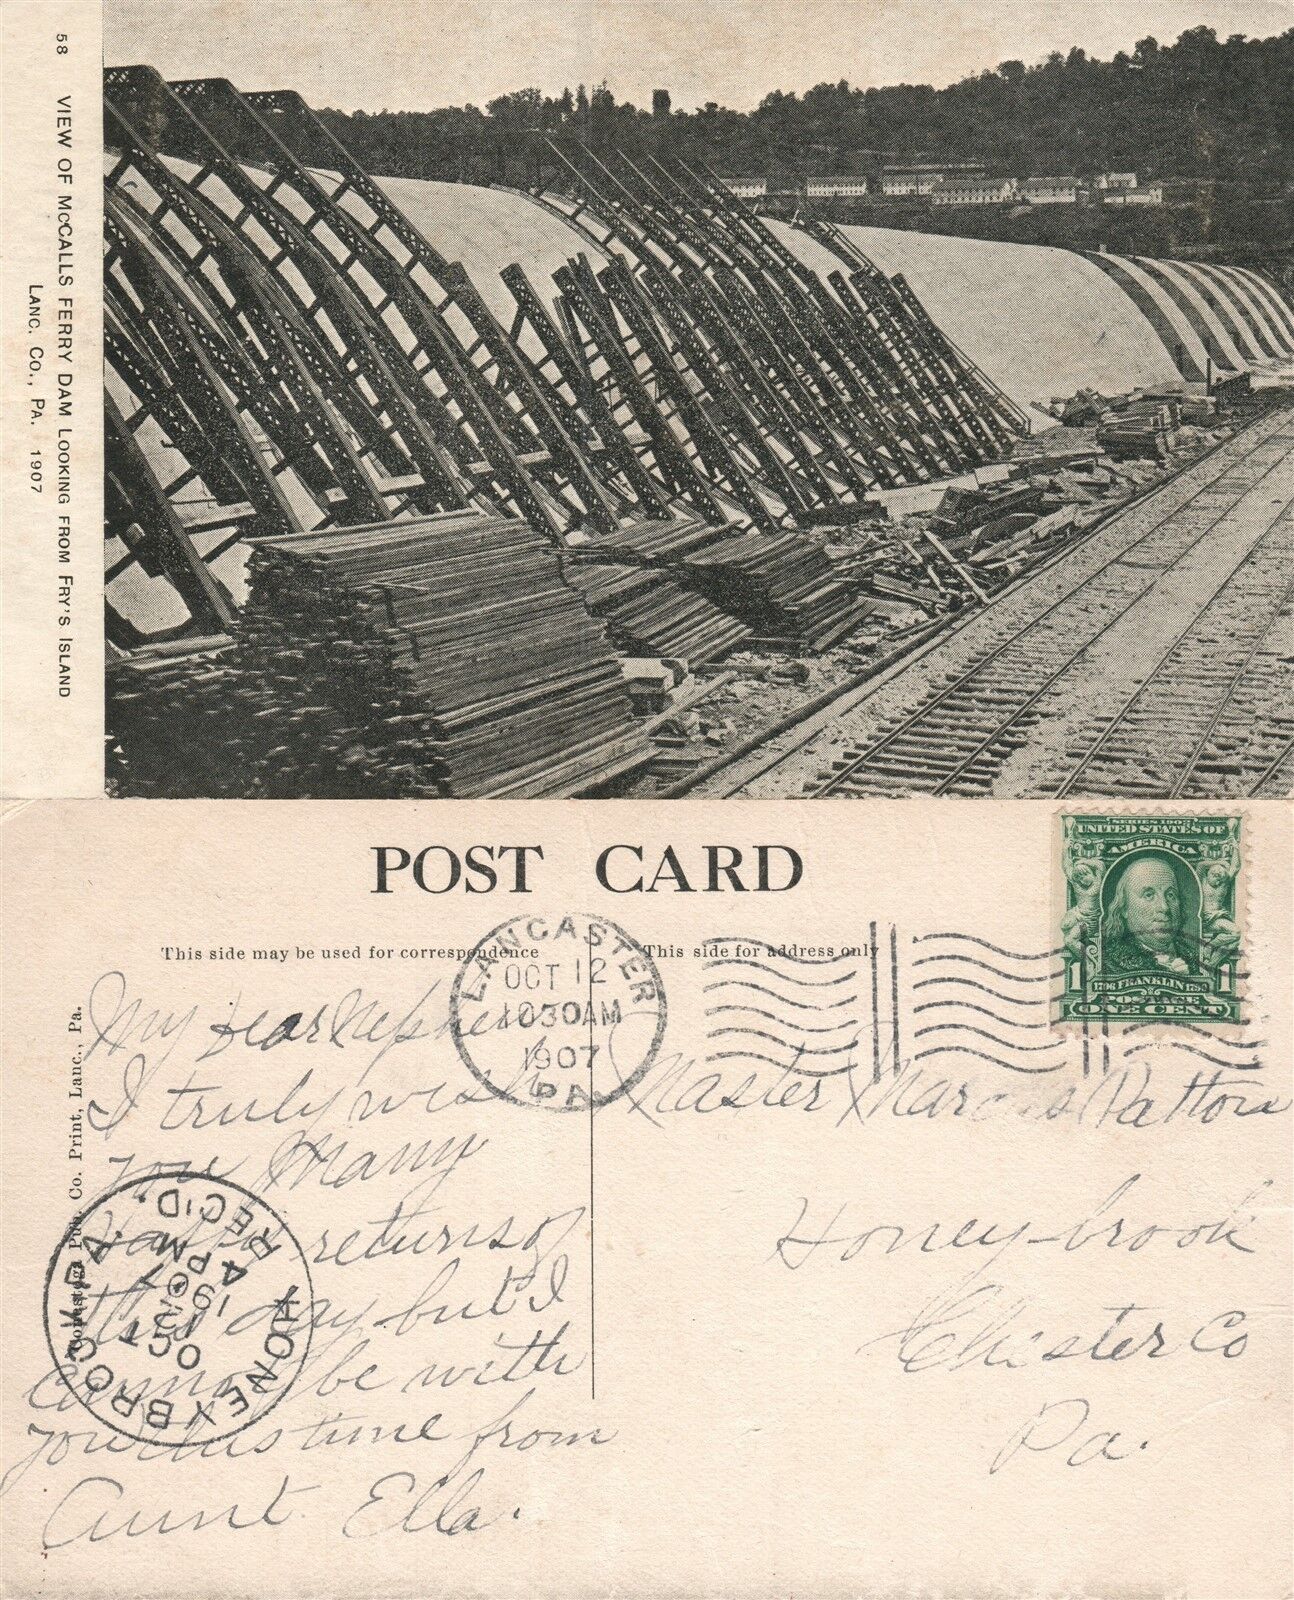 58 VIEW OF McCALLS FERRY DAM LOOKING FROM FRY'S ISLAND
LANC. CO., PA. 1907
POST CARD
This side may be used for correspondence
This side for address only
SERIES 1902
UNITED STATES OF
AMERICA
1 1
1706 FRANKLIN 1790
POSTAGE
ONE CENT
LANCASTER
OCT 12
1030AM
1907
PA
My Dear Nephew
I truly wish
you Many
Happy returns of
this day but I
cannot be with
you this time from
Aunt Ella.
Master Marcus Patton
Honey-brook
Chester Co
Pa.
Conestoga Pub. Co. Print, Lanc., Pa.
HONEYBROOK PA.
OCT
12
1907
4 PM
REC'D.